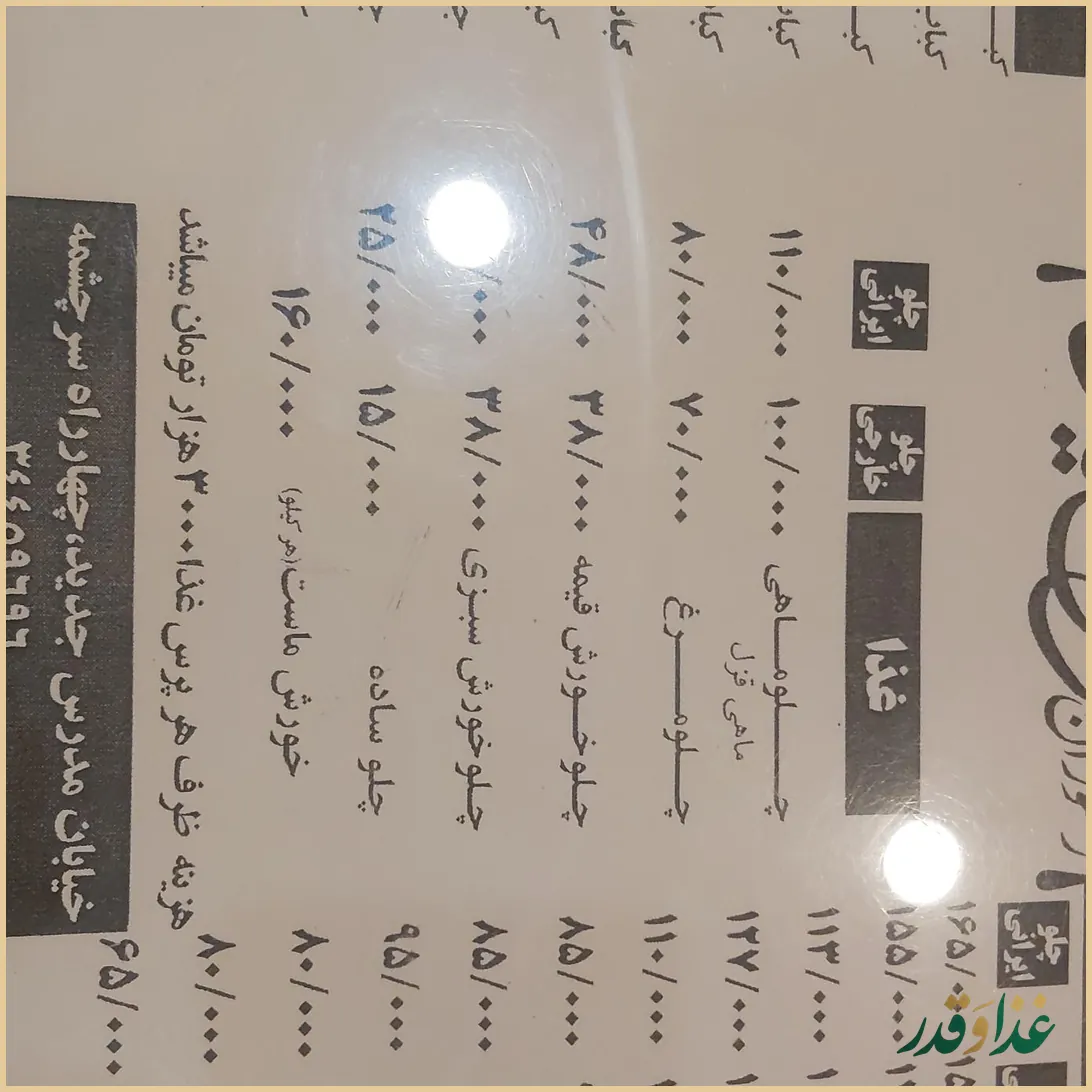 غذا چلو خارجی چلو ایرانی
چلوماهی ۱۰۰/۰۰۰ ۱۱۰/۰۰۰
ماهی قزل
چلومرغ ۷۰/۰۰۰ ۸۰/۰۰۰
چلوخورش قیمه ۳۸/۰۰۰ ۴۸/۰۰۰
چلوخورش سبزی ۳۸/۰۰۰ /۰۰۰
چلو ساده ۱۵/۰۰۰ ۲۵/۰۰۰
خورش ماست(هر کیلو) ۱۶۰/۰۰۰
هزینه ظرف هر پرس غذا ۳۰۰۰ هزار تومان میباشد
خیابان مدرس جدید،چهارراه سرچشمه
۳۶۶۵۹۶۹۶
چلو ایرانی
۱۶۵/۰۰۰
۱۵۵/۰۰۰
۱۱۳/۰۰۰
۱۲۷/۰۰۰
۱۱۰/۰۰۰
۸۵/۰۰۰
۸۵/۰۰۰
۹۵/۰۰۰
۸۰/۰۰۰
۸۰/۰۰۰
۶۵/۰۰۰
غذا و قدر